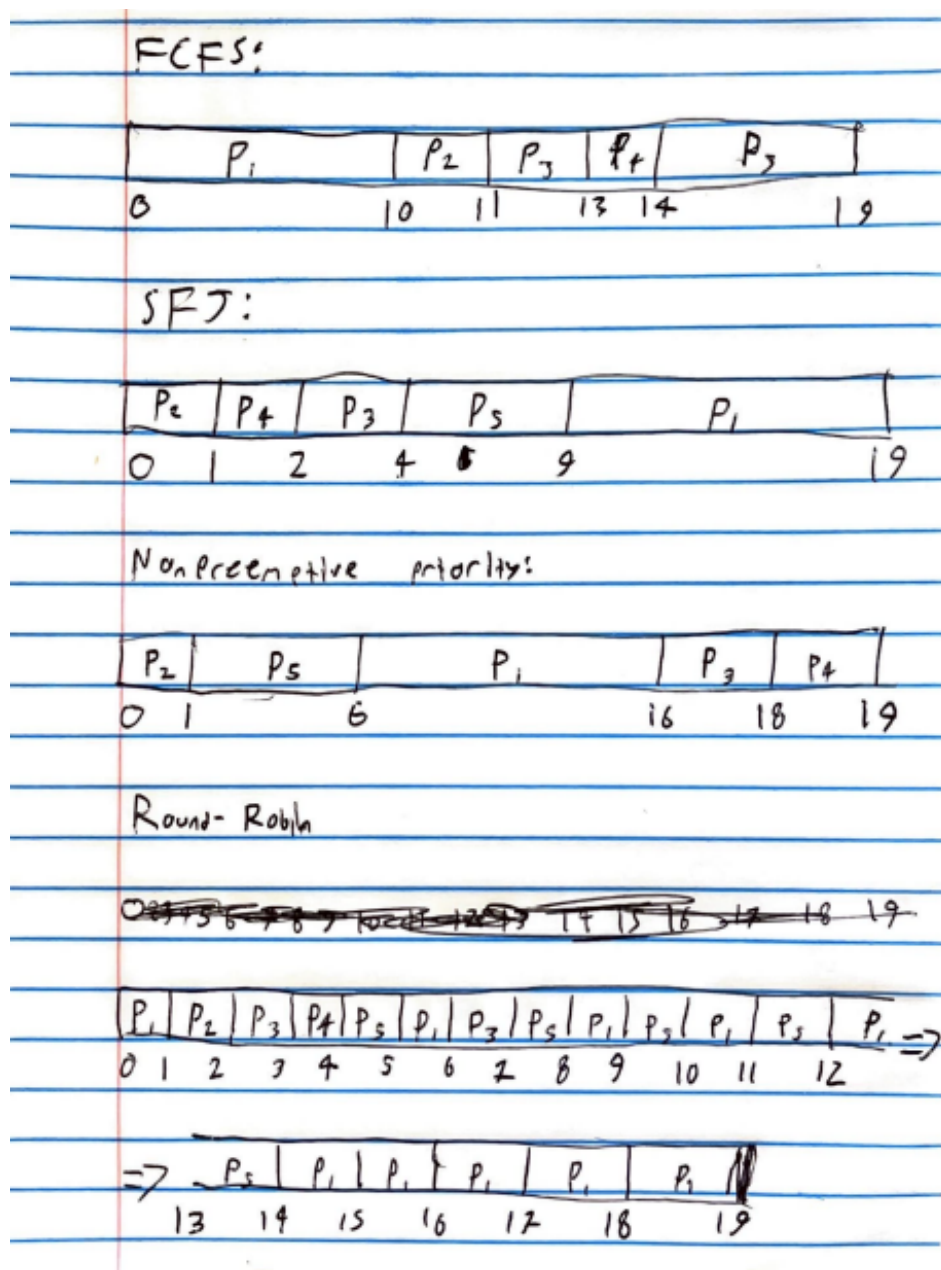 FCFS:
P1 P2 P3 P4 P5
0 10 11 13 14 19
SFJ:
P2 P4 P3 P5 P1
0 1 2 4 9 19
Nonpreemptive priority:
P2 P5 P1 P3 P4
0 1 6 16 18 19
Round-Robin
14 15 16 17 18 19
P1 P2 P3 P4 P5 P1 P3 P5 P1 P5 P1 P5 P1 =>
0 1 2 3 4 5 6 7 8 9 10 11 12
=> P5 P1 P1 P1 P1 P1
13 14 15 16 17 18 19